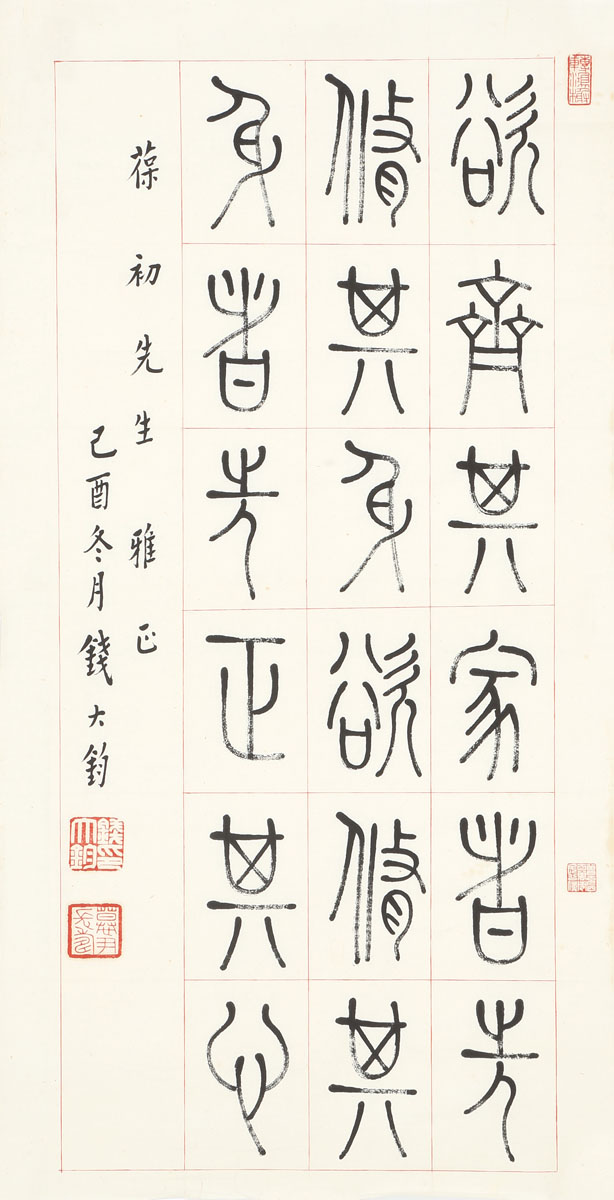 欲齊其家者先
脩其身欲脩其
身者先正其心
葆初先生雅正
己酉冬月錢大鈞
錢大鈞印